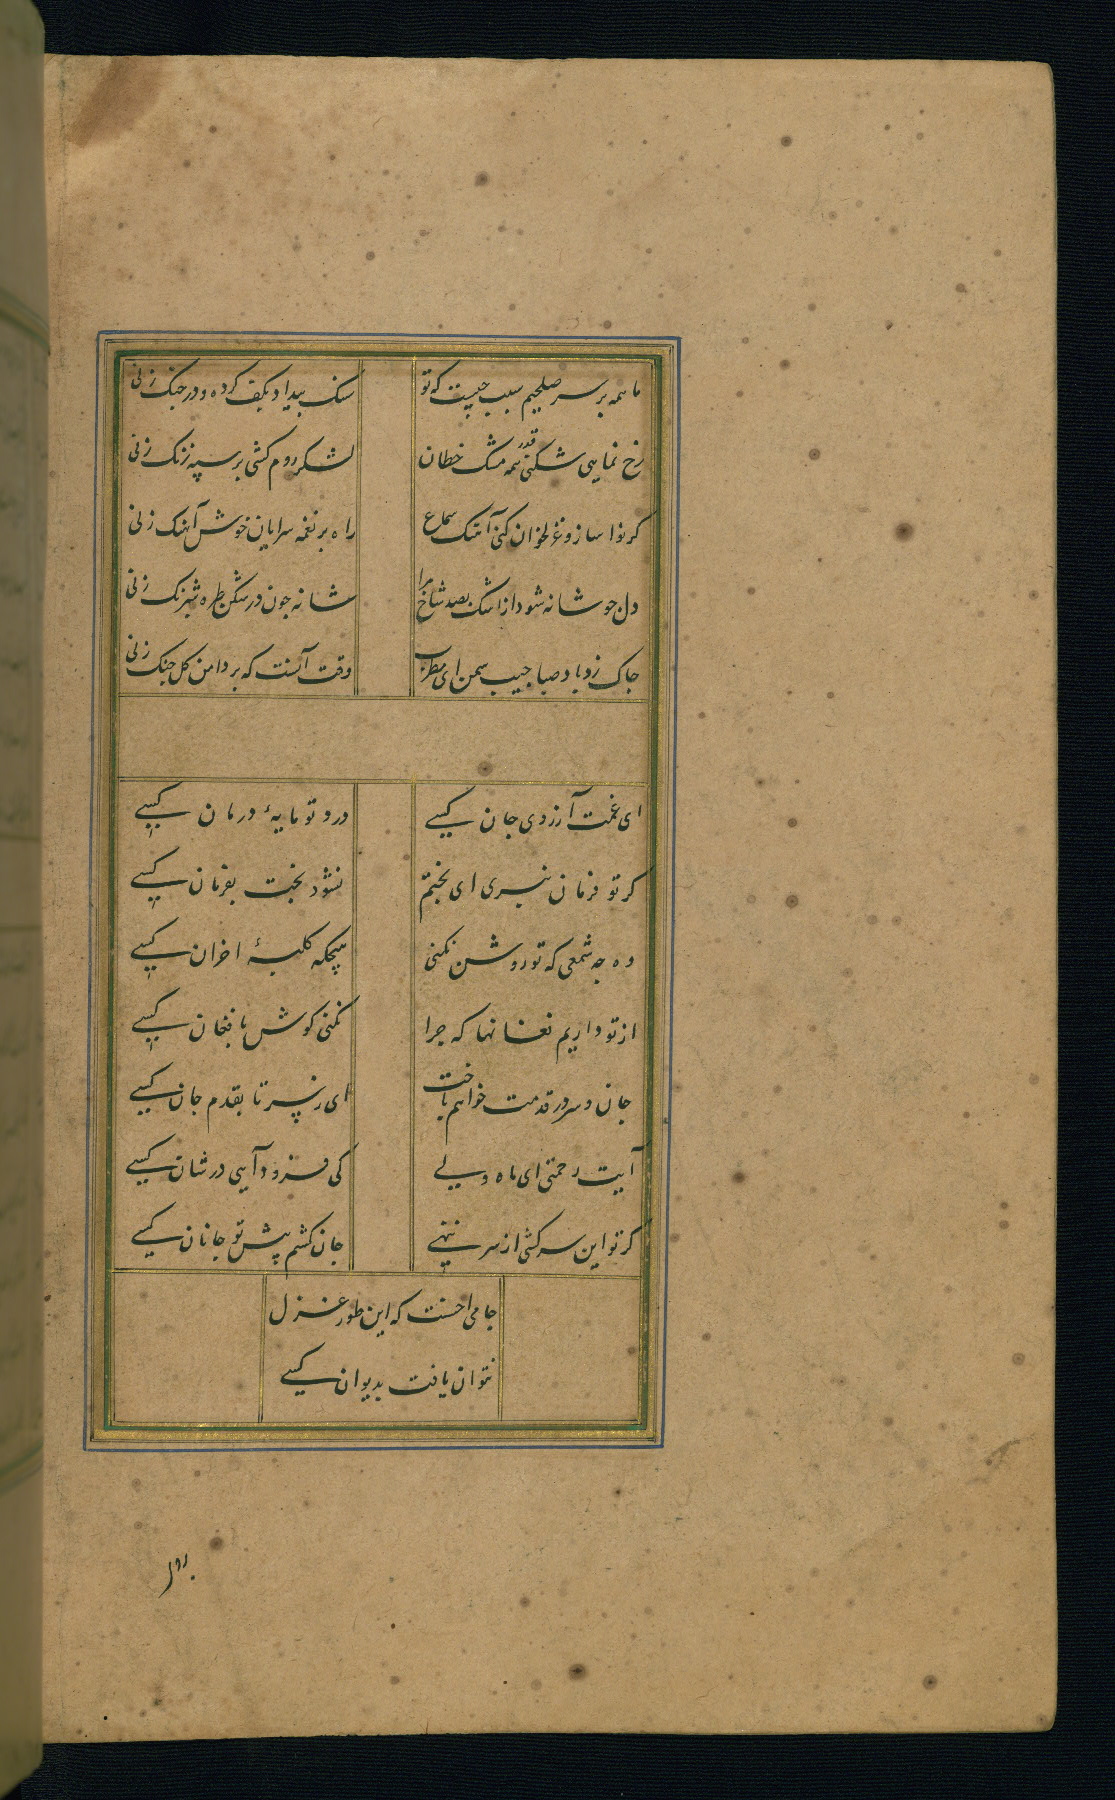 ما همه بر سر صلحیم سبب چیست که تو سنک بیداد بکف کرده و در جنک زنی
رخ نمایی شکنی قدر همه مشک خطان لشکر روم کشی بر سپه زنک زنی
کر نوا ساز و غزلخوان کنی آهنک سماع راه بر نغمه سرایان خوش آهنک زنی
دل جو شانه شود از اشک بصد شاخ مرا شانه جون در شکن طره شبرنک زنی
جاک زد باد صبا جیب سمن ای مطرب وقت آنست که بر دامن کل جنک زنی
ای غمت آرزوی جان کسی درد تو مایهٔ درمان کسی
کر تو فرمان نبری ای بختم نشود بخت بفرمان کسی
وه جه شمعی که تو روشن نکنی هیچکه کلبهٔ احزان کسی
از تو داریم فغانها که جرا نکنی کوش بافغان کسی
جان و سر در قدمت خواهم باخت ای ز سر تا بقدم جان کسی
آیت رحمتی ای ماه ولی کی فرود آیی در شان کسی
کر تو این سرکشی از سر ننهی جان کشم پیش تو جانان کسی
جامی احسنت که این طور غزل
نتوان یافت بدیوان کسی